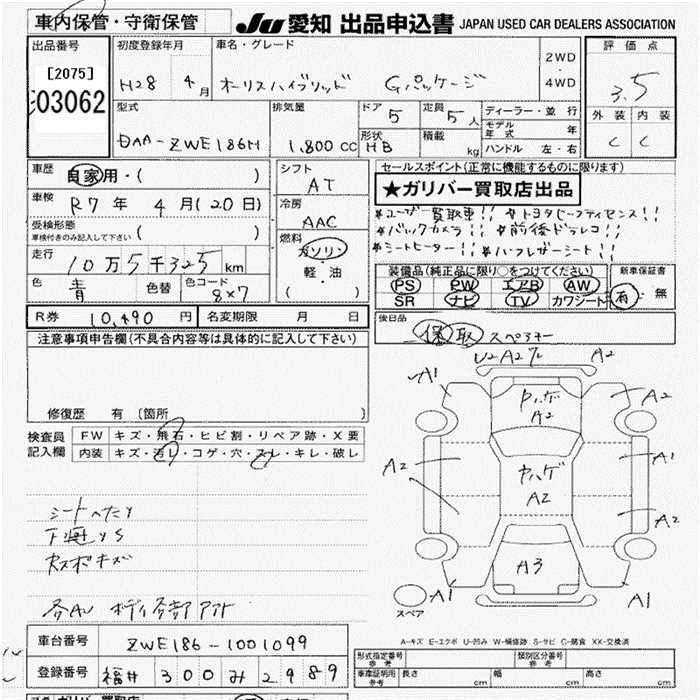 車内保管・守衛保管
JU 愛知 出品申込書 JAPAN USED CAR DEALERS ASSOCIATION
出品番号
[2075]
03062
初度登録年月
H28 4月
車名・グレード
オーリスハイブリッド Gパッケージ
2WD
4WD
評価点
3.5
外装 内装
C C
型式
DAA-ZWE186H
排気量
1,800cc
ドア 5
定員 5人
形状 HB
積載 kg
ディーラー・並行
モデル年式 年
ハンドル 左・右
車歴 自家用・( )
車検 R7年 4月(20日)
受検形態
車検付きのみ記入して下さい ( )
走行 10万5千325km
色 青 色替 色コード 8×7
シフト
AT
冷房
AAC
燃料
ガソリン
軽・油
( )
セールスポイント(正常に機能するものに限ります)
★ガリバー買取店出品
*ユーザー買取車!! *トヨタセーフティセンス!!
*バックカメラ!! *前後ドラレコ!!
*シートヒーター!! *ハーフレザーシート!!
装備品(純正品に限り○をつけてください)
PS PW エアB AW
SR ナビ TV カワシート
新車保証書
有・無
R券 10,490円 名変期限 月 日
後日品
保 取 スペアキー
注意事項申告欄(不具合内容等は具体的に記入して下さい)
修復歴 有 〔箇所 〕
検査員 記入欄
FW キズ・飛石・ヒビ割・リペア跡・X要
内装 キズ・汚レ・コゲ・穴・スレ・キレ・破レ
シートへたり
下廻りS
U2A2 A2
A1
ハゲ
A2
A2
A2
A1
ハゲ
A2
A2
A3
A1
A1
スペア
A-キズ E-エクボ U-凹み W-補修跡 S-サビ C-腐食 XX-交換済
車台番号 ZWE186-1001099
登録番号 福井 300 み 2989
形式指定番号 参考
類別区分番号 参考
車庫証明用 参考 長さ cm 幅 cm 高さ cm